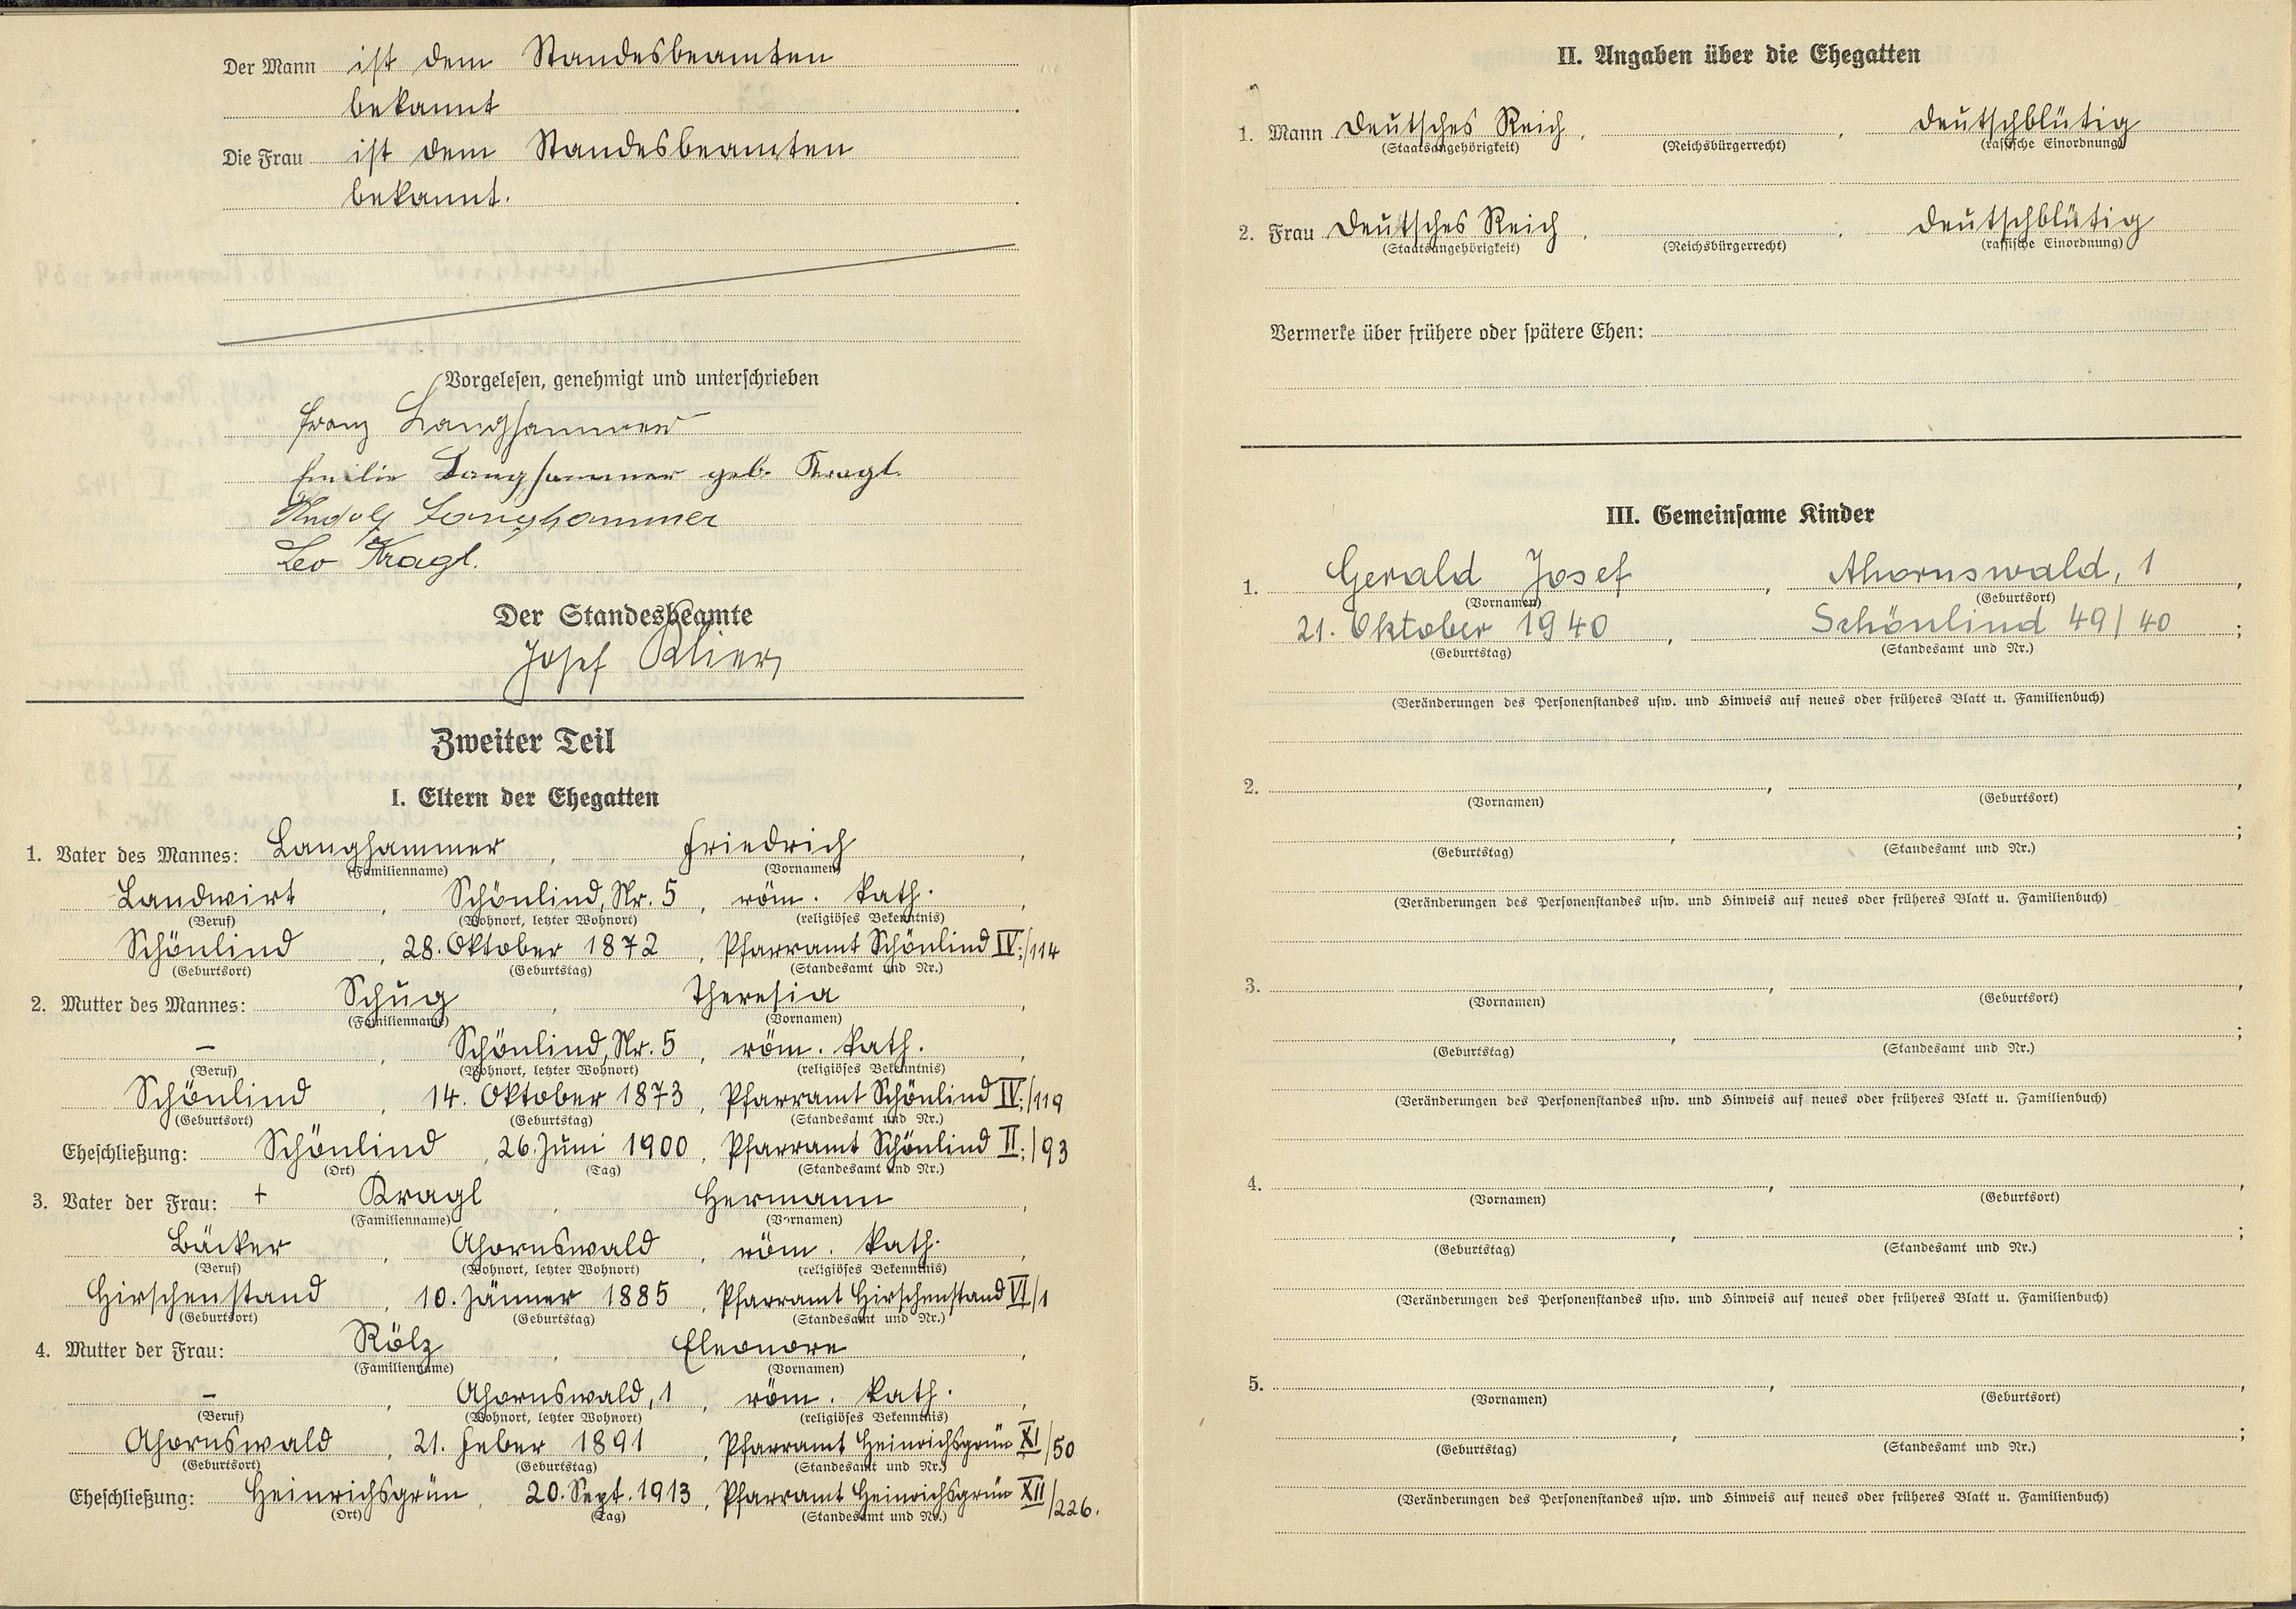 Der Mann ist dem Standesbeamten
bekannt.
Die Frau ist dem Standesbeamten
bekannt.
Vorgelesen, genehmigt und unterschrieben
Franz Langhammer
Emilie Langhammer geb. Kragl.
Rudolf Langhammer
Leo Kragl.
Der Standesbeamte
Josef Klier
Zweiter Teil
I. Eltern der Ehegatten
1. Vater des Mannes: Langhammer, Friedrich,
(Familienname) (Vornamen)
Landwirt, Schönlind, Nr. 5, röm. kath.,
(Beruf) (Wohnort, letzter Wohnort) (religiöses Bekenntnis)
Schönlind, 28. Oktober 1872, Pfarramt Schönlind IV:/114
(Geburtsort) (Geburtstag) (Standesamt und Nr.)
2. Mutter des Mannes: Schug, Theresia,
(Familienname) (Vornamen)
–, Schönlind, Nr. 5, röm. kath.,
(Beruf) (Wohnort, letzter Wohnort) (religiöses Bekenntnis)
Schönlind, 14. Oktober 1873, Pfarramt Schönlind IV:/119
(Geburtsort) (Geburtstag) (Standesamt und Nr.)
Eheschließung: Schönlind, 26. Juni 1900, Pfarramt Schönlind II:/93
(Ort) (Tag) (Standesamt und Nr.)
3. Vater der Frau: + Kragl, Hermann,
(Familienname) (Vornamen)
Bäcker, Ahornswald, röm. kath.,
(Beruf) (Wohnort, letzter Wohnort) (religiöses Bekenntnis)
Hirschenstand, 10. Jänner 1885, Pfarramt Hirschenstand VI/1
(Geburtsort) (Geburtstag) (Standesamt und Nr.)
4. Mutter der Frau: Rölz, Eleonore,
(Familienname) (Vornamen)
–, Ahornswald, 1, röm. kath.,
(Beruf) (Wohnort, letzter Wohnort) (religiöses Bekenntnis)
Ahornswald, 21. Feber 1891, Pfarramt Heinrichsgrün XI/50
(Geburtsort) (Geburtstag) (Standesamt und Nr.)
Eheschließung: Heinrichsgrün, 20. Sept. 1913, Pfarramt Heinrichsgrün XII/226.
(Ort) (Tag) (Standesamt und Nr.)
II. Angaben über die Ehegatten
1. Mann Deutsches Reich, , deutschblütig
(Staatsangehörigkeit) (Reichsbürgerrecht) (rassische Einordnung)
2. Frau Deutsches Reich, , deutschblütig
(Staatsangehörigkeit) (Reichsbürgerrecht) (rassische Einordnung)
Vermerke über frühere oder spätere Ehen:
III. Gemeinsame Kinder
1. Gerald Josef, Ahornswald, 1,
(Vornamen) (Geburtsort)
21. Oktober 1940, Schönlind 49/40;
(Geburtstag) (Standesamt und Nr.)
(Veränderungen des Personenstandes usw. und Hinweis auf neues oder früheres Blatt u. Familienbuch)
2. , ,
(Vornamen) (Geburtsort)
, ;
(Geburtstag) (Standesamt und Nr.)
(Veränderungen des Personenstandes usw. und Hinweis auf neues oder früheres Blatt u. Familienbuch)
3. , ,
(Vornamen) (Geburtsort)
, ;
(Geburtstag) (Standesamt und Nr.)
(Veränderungen des Personenstandes usw. und Hinweis auf neues oder früheres Blatt u. Familienbuch)
4. , ,
(Vornamen) (Geburtsort)
, ;
(Geburtstag) (Standesamt und Nr.)
(Veränderungen des Personenstandes usw. und Hinweis auf neues oder früheres Blatt u. Familienbuch)
5. , ,
(Vornamen) (Geburtsort)
, ;
(Geburtstag) (Standesamt und Nr.)
(Veränderungen des Personenstandes usw. und Hinweis auf neues oder früheres Blatt u. Familienbuch)